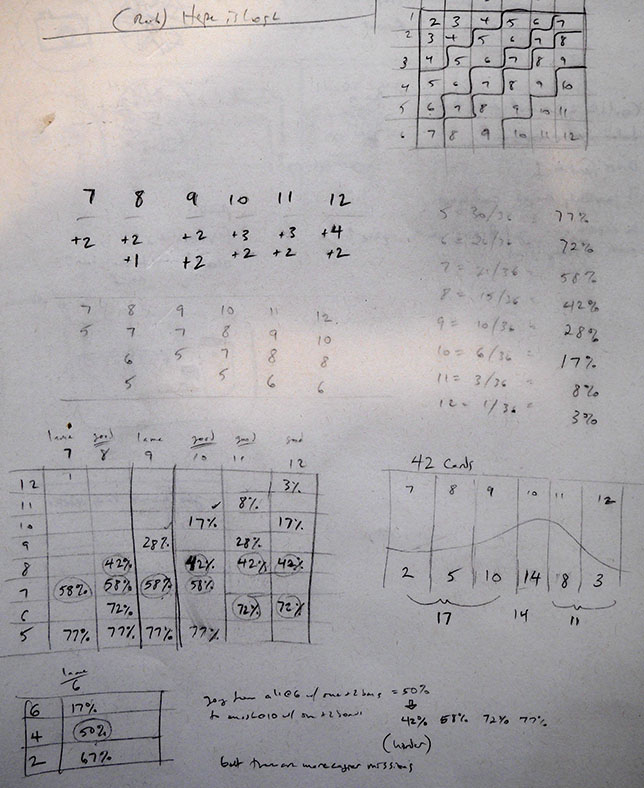 1 2 3 4 5 6 7
2 3 4 5 6 7 8
3 4 5 6 7 8 9
4 5 6 7 8 9 10
5 6 7 8 9 10 11
6 7 8 9 10 11 12
7 8 9 10 11 12
+2 +2 +2 +3 +3 +4
+1 +2 +2 +2 +2
5 = 30/36 = 77%
6 = 26/36 = 72%
7 = 21/36 = 58%
8 = 15/36 = 42%
9 = 10/36 = 28%
10 = 6/36 = 17%
11 = 3/36 = 8%
12 = 1/36 = 3%
7 8 9 10 11 12
5 7 7 8 9 10
6 5 7 8 8
5 5 6 6
lame good lame good good good
7 8 9 10 11 12
12 3%
11 8%
10 17% 17%
9 28% 28%
8 42% 42% 42% 42%
7 58% 58% 58% 58%
6 72% 72% 72%
5 77% 77% 77% 77%
42 Cards
7 8 9 10 11 12
2 5 10 14 8 3
17 14 11
lame
6
6 17%
4 50%
2 67%
from a = 50%
to 42% 58% 72% 77%
(harder)
but there are more copper missions